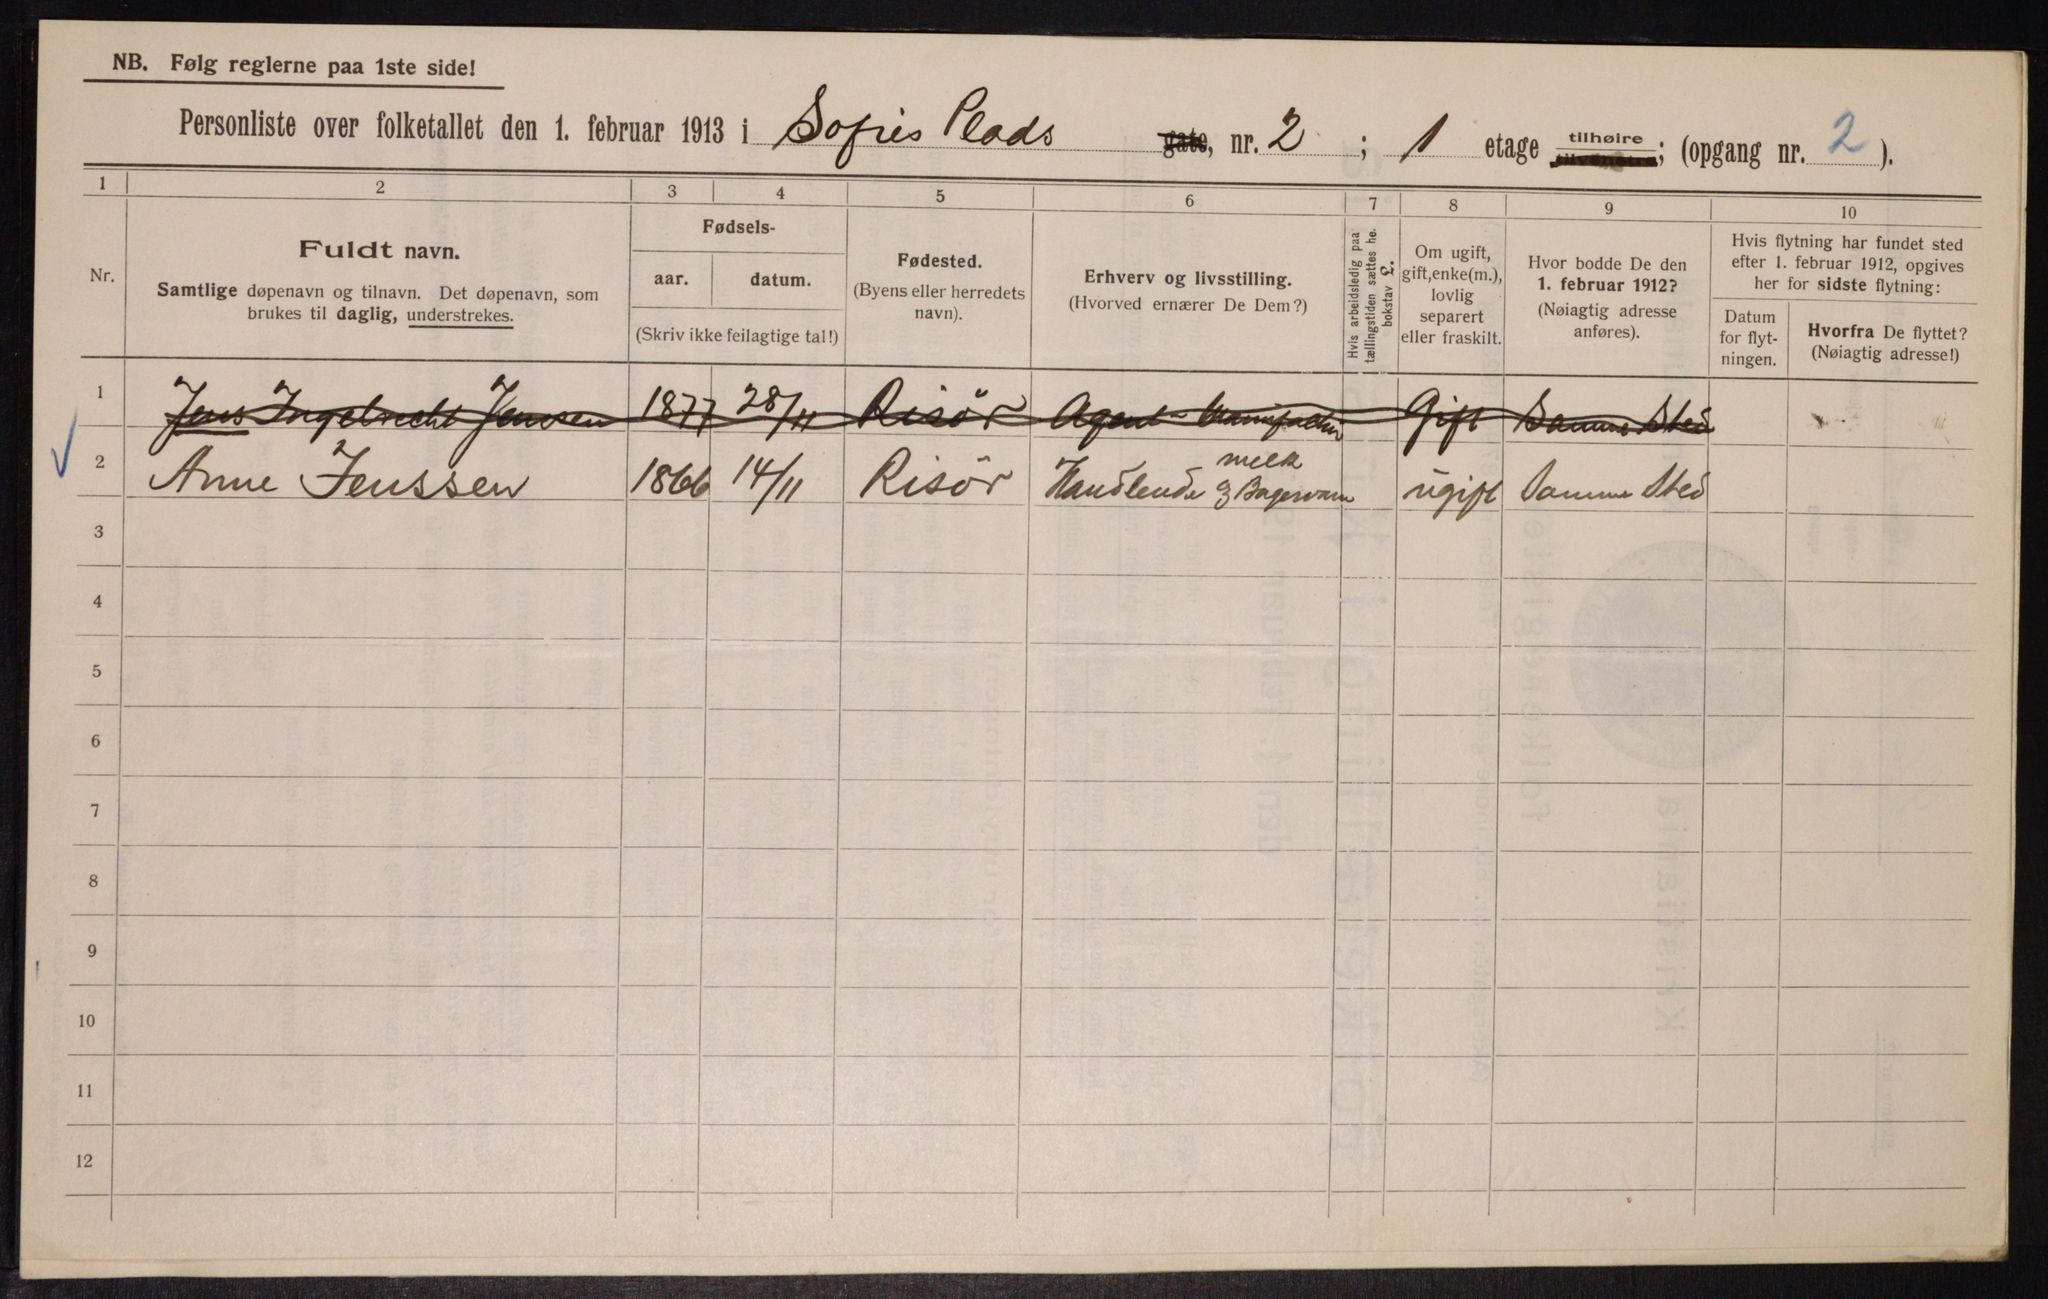 NB. Følg reglerne paa 1ste side!
Personliste over folketallet den 1. februar 1913 i Sofies Plads gate, nr. 2 ; 1 etage tilhøire tilvenstre; (opgang nr. 2 ).
1 2 3 4 5 6 7 8 9 10
Nr.
Fuldt navn.
Samtlige døpenavn og tilnavn. Det døpenavn, som
brukes til daglig, understrekes.
Fødsels-
aar. datum.
(Skriv ikke feilagtige tal!)
Fødested.
(Byens eller herredets
navn).
Erhverv og livsstilling.
(Hvorved ernærer De Dem?)
Hvis arbeidsledig paa
tællingstiden sættes he.
bokstav £.
Om ugift,
gift, enke(m.),
lovlig
separert
eller fraskilt.
Hvor bodde De den
1. februar 1912?
(Nøiagtig adresse
anføres).
Hvis flytning har fundet sted
efter 1. februar 1912, opgives
her for sidste flytning:
Datum
for flyt-
ningen.
Hvorfra De flyttet?
(Nøiagtig adresse!)
1 Jens Ingebrecht Jenssen 1877 28/11 Risör Agent Gift Samme Sted
2 Anne Jenssen 1866 14/11 Risör Handlende melk og Bagervare ugift Samme Sted
3
4
5
6
7
8
9
10
11
12